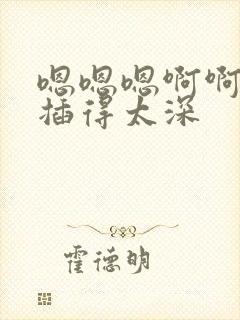 嗯嗯嗯啊啊
插得太深
霍德明